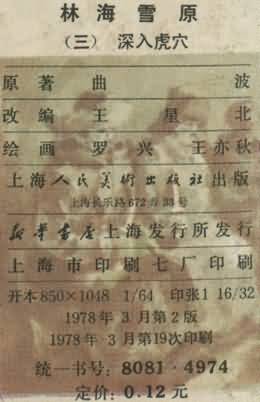 林海雪原
(三) 深入虎穴
原著曲波
改编王星北
绘画罗兴 王亦秋
上海人民美术出版社出版
上海长乐路672弄33号
新华书店上海发行所发行
上海市印刷七厂印刷
开本850×1048 1/64 印张1 16/32
1978年3月第2版
1978年3月第19次印刷
统一书号: 8081·4974
定价: 0.12元